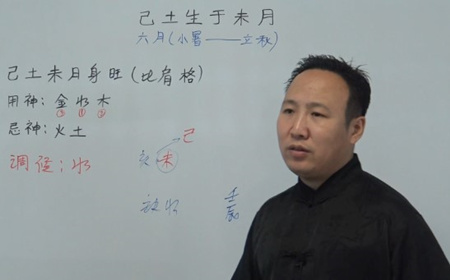 己土生于未月
六月(小暑——立秋)
己土未月身旺(比肩格)
用神:金水木
①①②
忌神:火土
调候:水
己
未